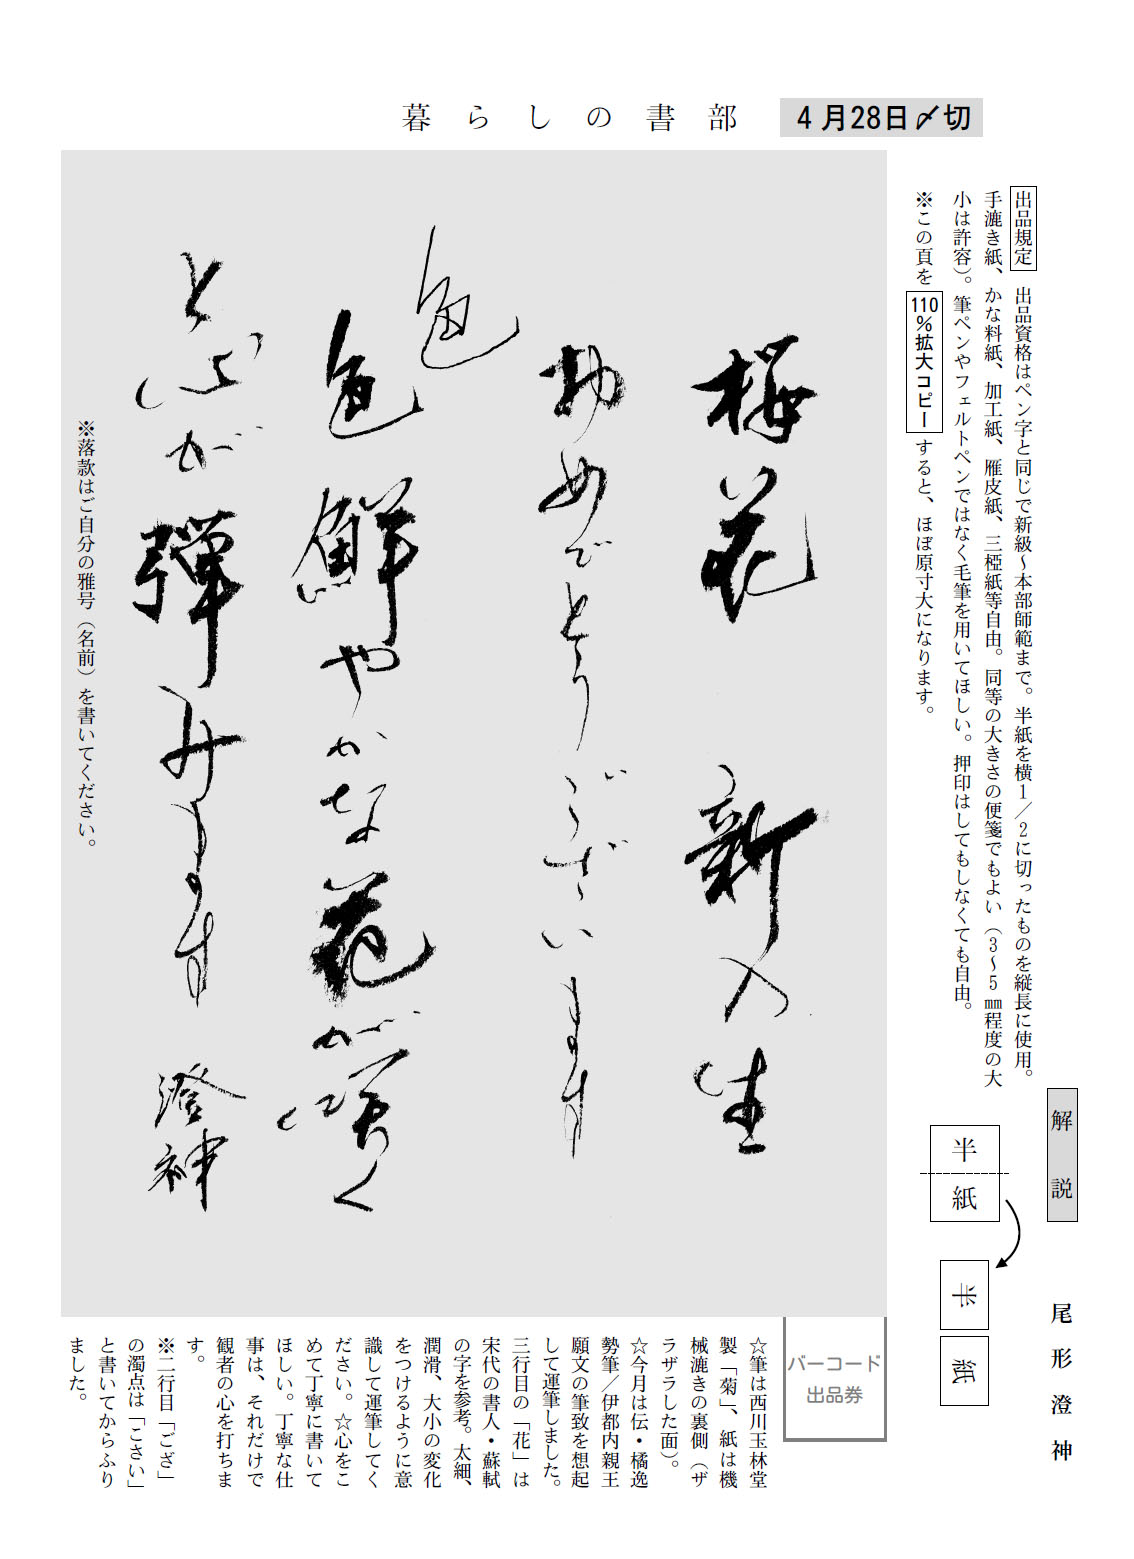 暮らしの書部
4月28日〆切
解説
尾形澄神
出品規定 出品資格はペン字と同じで新級〜本部師範まで。半紙を横1／2に切ったものを縦長に使用。
手漉き紙、かな料紙、加工紙、雁皮紙、三椏紙等自由。同等の大きさの便箋でもよい（3〜5㎜程度の大
小は許容）。筆ペンやフェルトペンではなく毛筆を用いてほしい。押印はしてもしなくても自由。
※この頁を110％拡大コピーすると、ほぼ原寸大になります。
半紙
半
紙
新入生
おめでとうございます
色
色鮮やかな花が咲く
と心が弾みます
澄神
※落款はご自分の雅号（名前）を書いてください。
バーコード
出品券
☆筆は西川玉林堂
製「菊」、紙は機
械漉きの裏側（ザ
ラザラした面）。
☆今月は伝・橘逸
勢筆／伊都内親王
願文の筆致を想起
して運筆しました。
三行目の「花」は
宋代の書人・蘇軾
の字を参考。太細、
潤滑、大小の変化
をつけるように意
識して運筆してく
ださい。☆心をこ
めて丁寧に書いて
ほしい。丁寧な仕
事は、それだけで
観者の心を打ちま
す。
※二行目「ござ」
の濁点は「こさい」
と書いてからふり
ました。